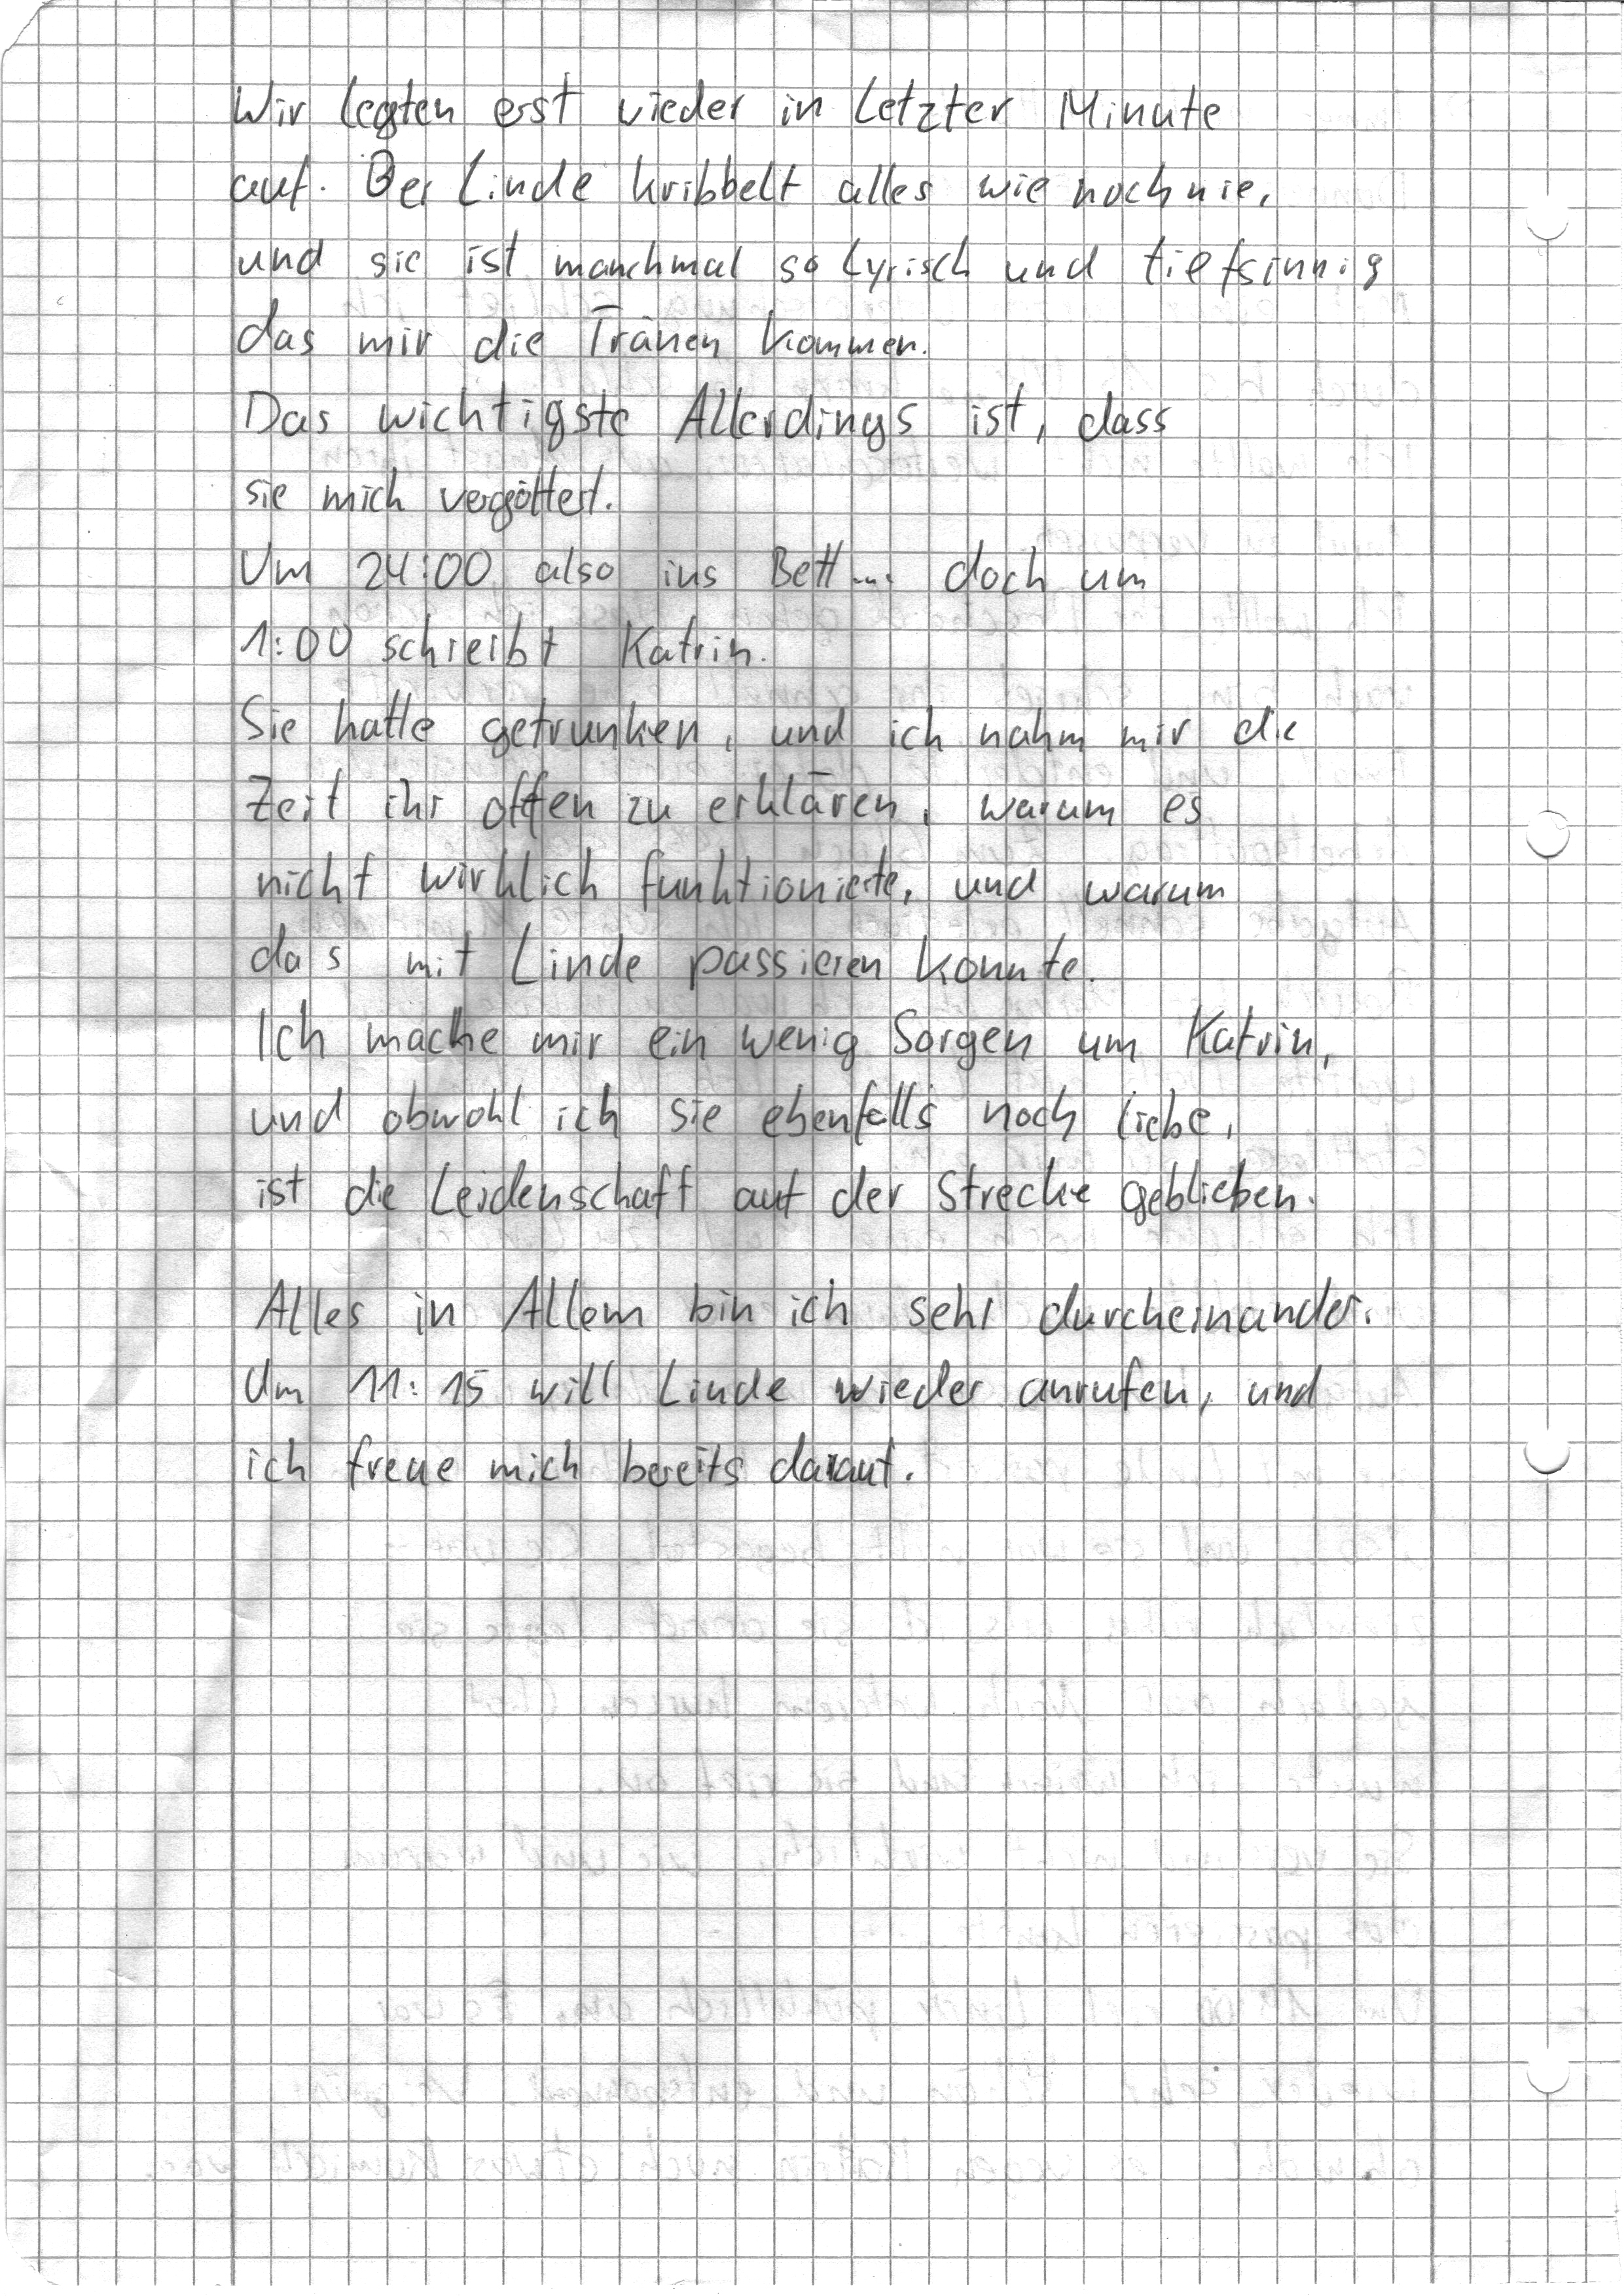 Wir legten erst wieder in letzter Minute
auf. Bei Linde kribbelt alles wie noch nie,
und sie ist manchmal so lyrisch und tiefsinnig
das mir die Tränen kommen.
Das wichtigste Allerdings ist, dass
sie mich vergöttert.
Um 24:00 also ins Bett... doch um
1:00 schreibt Katrin.
Sie hatte getrunken, und ich nahm mir die
Zeit ihr offen zu erklären, warum es
nicht wirklich funktionierte, und warum
das mit Linde passieren konnte.
Ich mache mir ein wenig Sorgen um Katrin,
und obwohl ich sie ebenfalls noch liebe,
ist die Leidenschaft auf der Strecke geblieben.
Alles in Allem bin ich sehr durcheinander.
Um 11:15 will Linde wieder anrufen, und
ich freue mich bereits darauf.